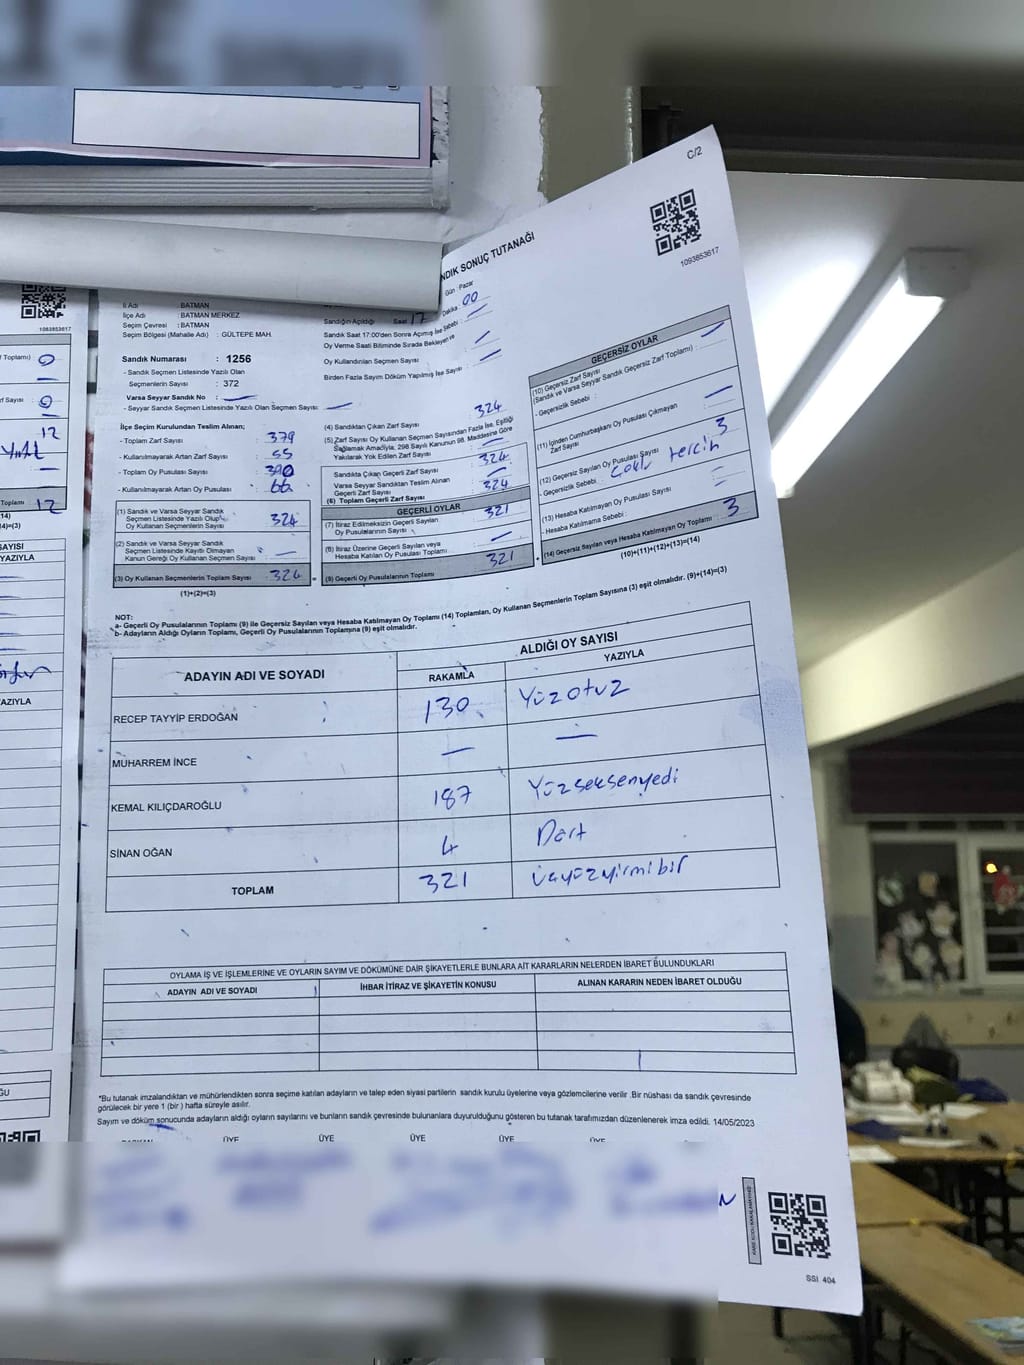 C/2
NDIK SONUÇ TUTANAĞI
1093853617
1093853617
İl Adı : BATMAN
İlçe Adı : BATMAN MERKEZ
Seçim Çevresi : BATMAN
Seçim Bölgesi (Mahalle Adı) : GÜLTEPE MAH.
Sandık Numarası : 1256
- Sandık Seçmen Listesinde Yazılı Olan
Seçmenlerin Sayısı : 372
Varsa Seyyar Sandık No : —
- Seyyar Sandık Seçmen Listesinde Yazılı Olan Seçmen Sayısı: —
Gün : Pazar
Sandığın Açıldığı Saat : 17 Dakika : 00
Sandık Saat 17:00'den Sonra Açılmış İse Sebebi : —
Oy Verme Saati Bitiminde Sırada Bekleyen ve
Oy Kullandırılan Seçmen Sayısı : —
Birden Fazla Sayım Döküm Yapılmış İse Sayısı : —
İlçe Seçim Kurulundan Teslim Alınan;
- Toplam Zarf Sayısı : 379
- Kullanılmayarak Artan Zarf Sayısı : 55
- Toplam Oy Pusulası Sayısı : 390
- Kullanılmayarak Artan Oy Pusulası : 66
(1) Sandık ve Varsa Seyyar Sandık
Seçmen Listesinde Yazılı Olup
Oy Kullanan Seçmenlerin Sayısı : 324
(2) Sandık ve Varsa Seyyar Sandık
Seçmen Listesinde Kayıtlı Olmayan
Kanun Gereği Oy Kullanan Seçmen Sayısı : —
(3) Oy Kullanan Seçmenlerin Toplam Sayısı : 324
(1)+(2)=(3)
(4) Sandıktan Çıkan Zarf Sayısı : 324
(5) Zarf Sayısı Oy Kullanan Seçmen Sayısından Fazla İse, Eşitliği
Sağlamak Amacıyla, 298 Sayılı Kanunun 98. Maddesine Göre
Yakılarak Yok Edilen Zarf Sayısı : —
Sandıkta Çıkan Geçerli Zarf Sayısı : 324
Varsa Seyyar Sandıktan Teslim Alınan
Geçerli Zarf Sayısı : —
(6) Toplam Geçerli Zarf Sayısı : 324
GEÇERLİ OYLAR
(7) İtiraz Edilmeksizin Geçerli Sayılan
Oy Pusulasının Sayısı : 321
(8) İtiraz Üzerine Geçerli Sayılan veya
Hesaba Katılan Oy Pusulası Toplamı : —
(9) Geçerli Oy Pusulalarının Toplamı : 321
GEÇERSİZ OYLAR
(10) Geçersiz Zarf Sayısı
(Sandık ve Varsa Seyyar Sandık Geçersiz Zarf Toplamı) : —
- Geçersizlik Sebebi :
(11) İçinden Cumhurbaşkanı Oy Pusulası Çıkmayan
Zarf Sayısı : —
(12) Geçersiz Sayılan Oy Pusulası Sayısı : 3
- Geçersizlik Sebebi : Çoklu tercih
(13) Hesaba Katılmayan Oy Pusulası Sayısı : —
- Hesaba Katılmama Sebebi : —
(14) Geçersiz Sayılan veya Hesaba Katılmayan Oy Toplamı : 3
(10)+(11)+(12)+(13)=(14)
NOT:
a- Geçerli Oy Pusulalarının Toplamı (9) ile Geçersiz Sayılan veya Hesaba Katılmayan Oy Toplamı (14) Toplamları, Oy Kullanan Seçmenlerin Toplam Sayısına (3) eşit olmalıdır. (9)+(14)=(3)
b- Adayların Aldığı Oyların Toplamı, Geçerli Oy Pusulalarının Toplamına (9) eşit olmalıdır.
ADAYIN ADI VE SOYADI
ALDIĞI OY SAYISI
RAKAMLA YAZIYLA
RECEP TAYYİP ERDOĞAN 130 Yüzotuz
MUHARREM İNCE — —
KEMAL KILIÇDAROĞLU 187 Yüzseksenyedi
SİNAN OĞAN 4 Dört
TOPLAM 321 Üçyüzyirmibir
OYLAMA İŞ VE İŞLEMLERİNE VE OYLARIN SAYIM VE DÖKÜMÜNE DAİR ŞİKAYETLERLE BUNLARA AİT KARARLARIN NELERDEN İBARET BULUNDUKLARI
ADAYIN ADI VE SOYADI İHBAR İTİRAZ VE ŞİKAYETİN KONUSU ALINAN KARARIN NEDEN İBARET OLDUĞU
*Bu tutanak imzalandıktan ve mühürlendikten sonra seçime katılan adayların ve talep eden siyasi partilerin sandık kurulu üyelerine veya gözlemcilerine verilir .Bir nüshası da sandık çevresinde
görülecek bir yere 1 (bir ) hafta süreyle asılır.
Sayım ve döküm sonucunda adayların aldığı oyların sayılarını ve bunların sandık çevresinde bulunanlara duyurulduğunu gösteren bu tutanak tarafımızdan düzenlenerek imza edildi. 14/05/2023
BAŞKAN ÜYE ÜYE ÜYE ÜYE ÜYE
SSI 404